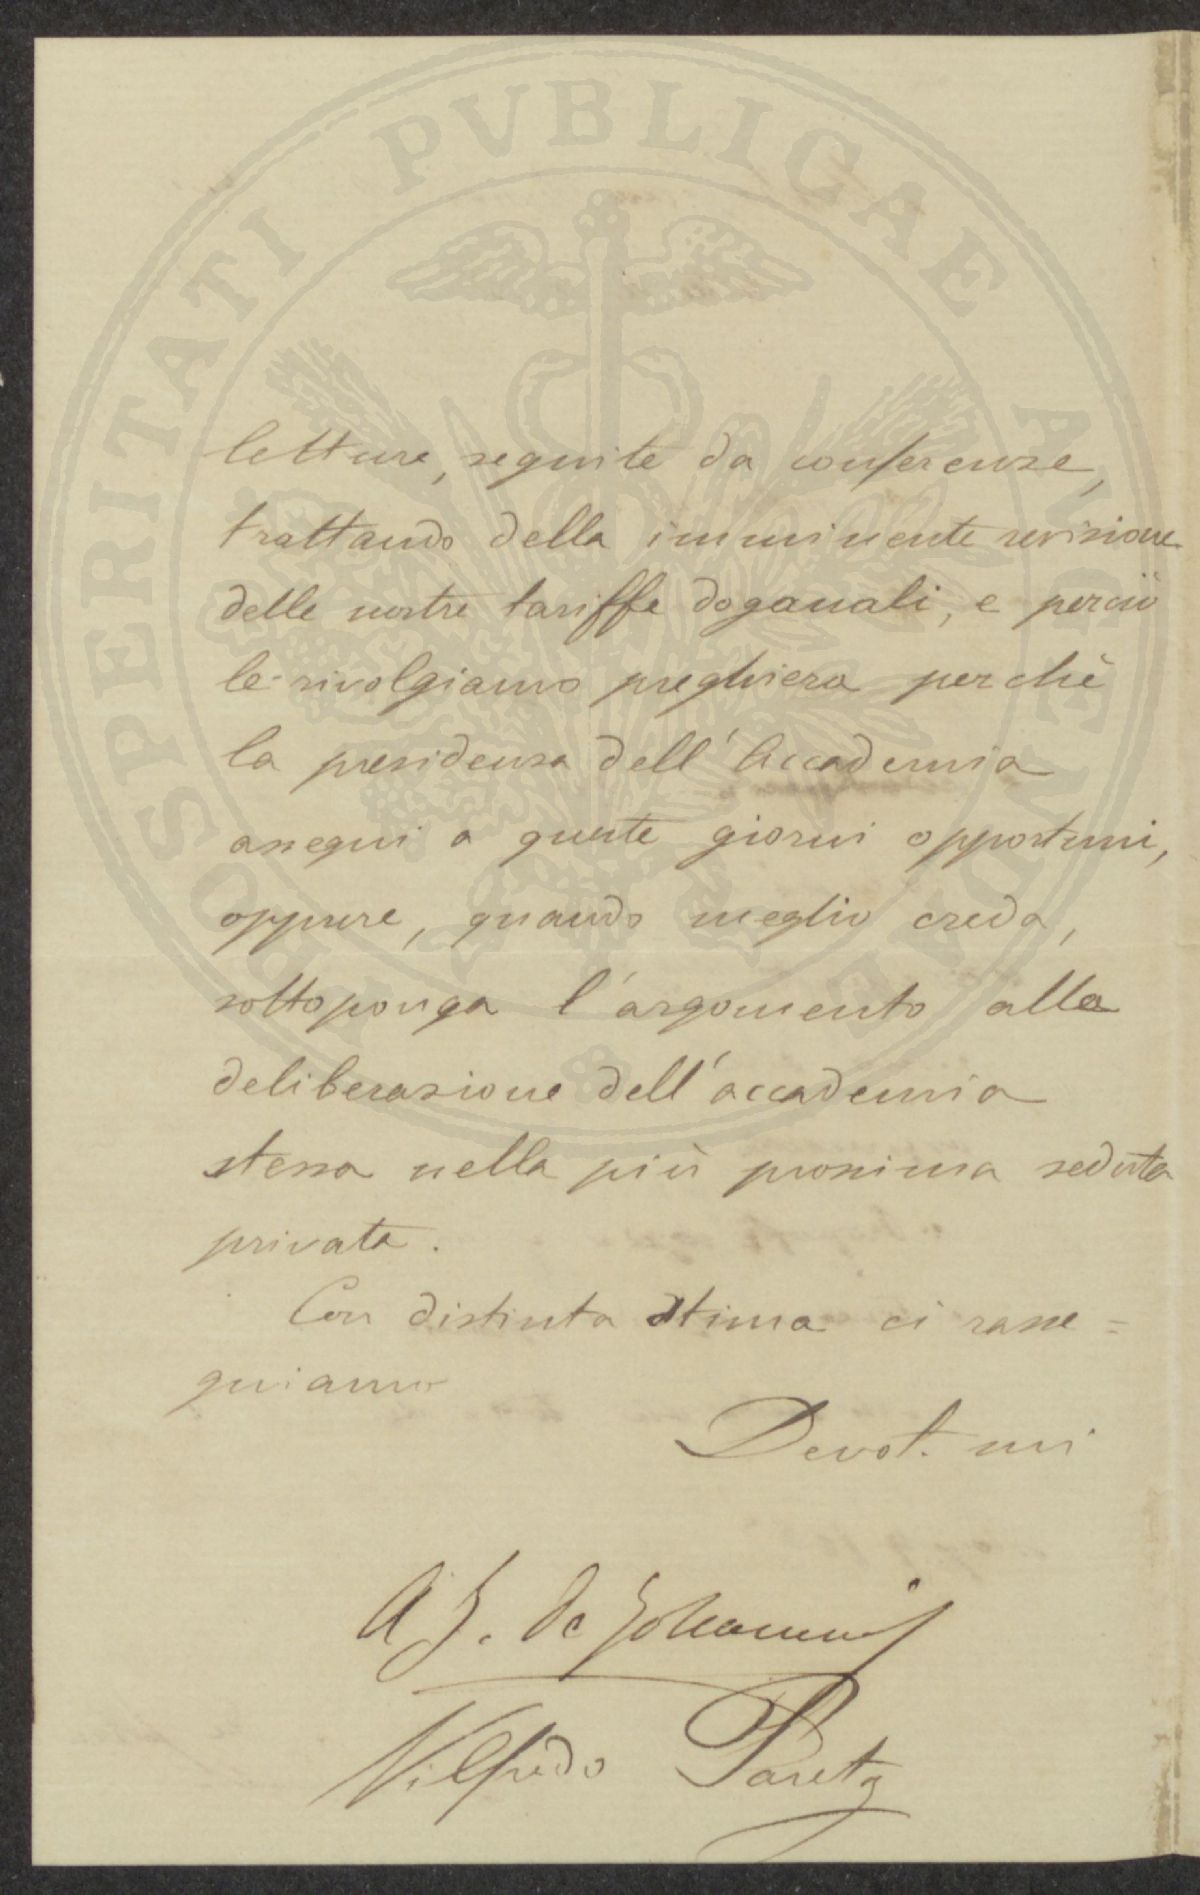 PROSPERITATI PVBLICAE AVGENDAE
letture, seguite da conferenze,
trattando della imminente revisione
delle nostre tariffe doganali, e perciò
le rivolgiamo preghiera perchè
la presidenza dell'Accademia
assegni a queste giorni opportuni,
oppure, quando meglio creda,
sottoponga l'argomento alla
deliberazione dell'accademia
stessa nella più prossima seduta
privata.
Con distinta stima ci rasse=
gniamo
Devot. mi
A J. de Johannis
Vilfredo Pareto